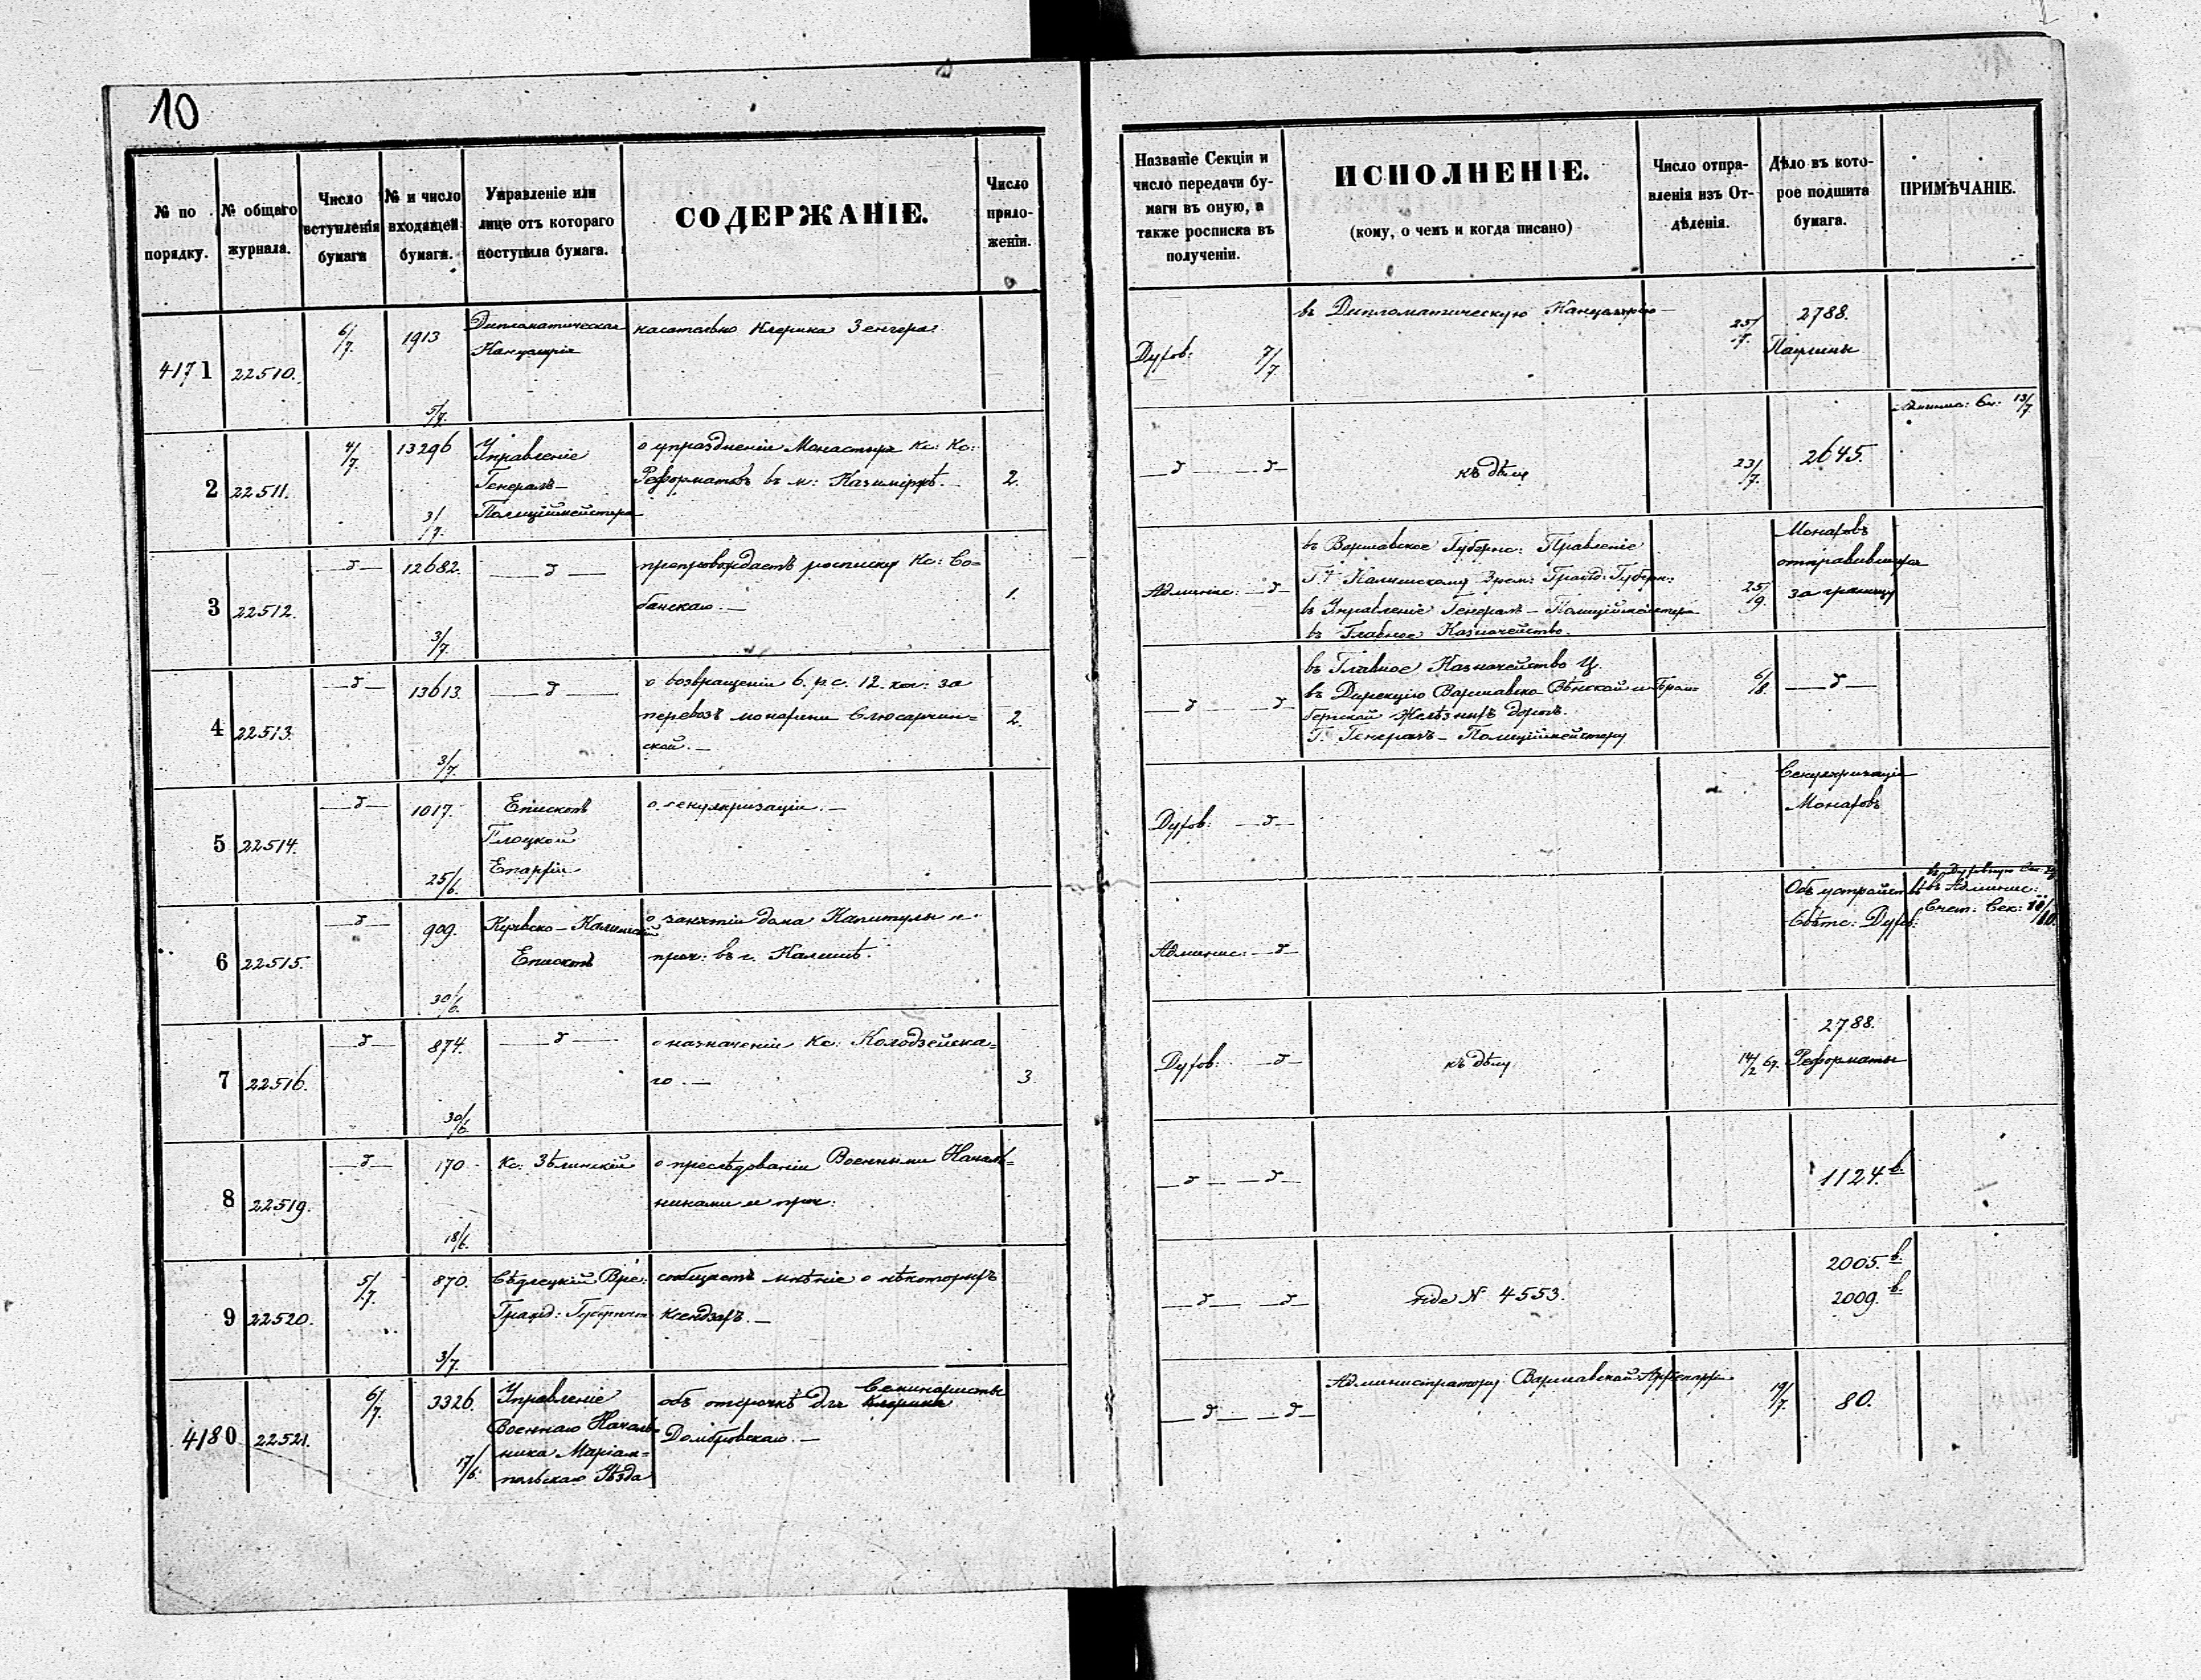 10
№ по порядку.
№ общаго журнала.
Число вступленія бумаги
№ и число входящей бумаги.
Управленіе или лице отъ котораго поступила бумага.
СОДЕРЖАНІЕ.
Число приложеніи.
Названіе Секціи и число передачи бумаги въ оную, а также росписка въ полученіи.
ИСПОЛНЕНІЕ.
(кому, о чемъ и когда писано)
Число отправленія изъ Отдѣленія.
Дѣло въ которое подшита бумага.
ПРИМѢЧАНІЕ.
4171 22510. 6/7. 1913 5/7.
Дипломатическая
Канцелярія
касательно Клерика Зенгера.
Духов: 7/7.
въ Дипломатическую Канцелярію
25/7.
2788.
Паулины
2 22511. 4/7. 13296 3/7.
Управленіе
Генералъ-
Полиціймейстера
о упраздненіи Монастыря Кс: Кс:
Реформатовъ въ м: Казимірѣ.
2.
—д— —д—
къ дѣлу
23/7.
2645.
13/7
3 22512. —д— 12682. 3/7. —д—
препровождаетъ росписку Кс: Со=
банскаго.—
1.
Админис: —д—
въ Варшавское Губернс: Правленіе
Г. Калишскому Врем: Гражд: Губерн:
въ Управленіе Генералъ-Полиціймейстера
въ Главное Казначейство.
25/9.
Монаховъ
отправившихся
за границу
4 22513. —д— 13613. 3/7. —д—
о возвращеніи 6. р с. 12. коп: за
перевозъ монахини Слюсарчин=
ской.—
2.
—д— —д—
въ Главное Казначейство Ц.
въ Дирекцію Варшавско-Вѣнской и Бром=
бергской Желѣзныхъ дорогъ.
Г. Генералъ-Полиціймейстеру
6/8. —д—
5 22514. —д— 1017. 25/6.
Епископъ
Плоцкой
Епархіи
о секуляризаціи.—
Духов: —д—
Секуляризація
Монаховъ
6 22515. —д— 909. 30/6.
Куявско-Калишскій
Епископъ
о занятіи дома Капитулы и
проч: въ г. Калишѣ.
Админис: —д—
Объ устройствѣ
Свѣтс: Духов:
въ Админис:
Счет: Сек:
7 22516. —д— 874. 30/6. —д—
о назначеніи Кс: Колодзейска=
го.—
3
Духов: —д—
къ дѣлу
14/2 67.
2788.
Реформаты
8 22519. —д— 170 18/6.
Кс: Зѣлинскій
о преслѣдованіи Военными Началь=
никами и проч:
—д— —д—
1124. в.
9 22520. 5/7. 870. 3/7.
Сѣдлецкій Вре:
Гражд: Губерн
сообщаетъ мнѣніе о нѣкоторыхъ
Ксендзахъ.—
—д— —д—
vide N 4553.
2005. в.
2009. в.
4180 22521. 6/7. 3326. 17/6.
Управленіе
Военнаго Началь=
ника Маріам=
польскаго Уѣзда
объ отсрочкѣ для Клерика Семинариста
Домбровскаго.—
—д— —д—
Администратору Варшавской Архіепархіи
19/7.
80.